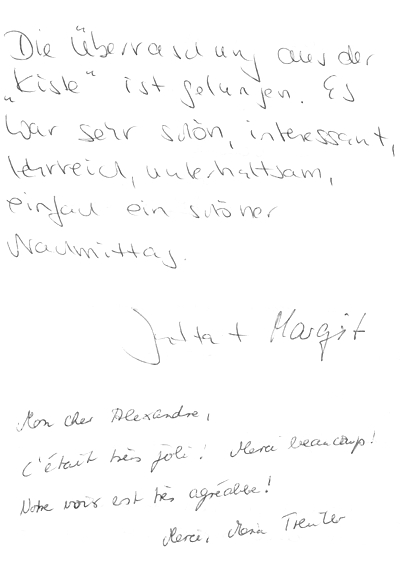 Die Überraschung aus der
„Kiste“ ist gelungen. Es
war sehr schön, interessant,
lehrreich, unterhaltsam,
einfach ein schöner
Nachmittag.
Jutta + Margit
Mon cher Alexandre,
C'était très joli! Merci beaucoup!
Notre voix est très agréable!
Merci, Maria Treuter